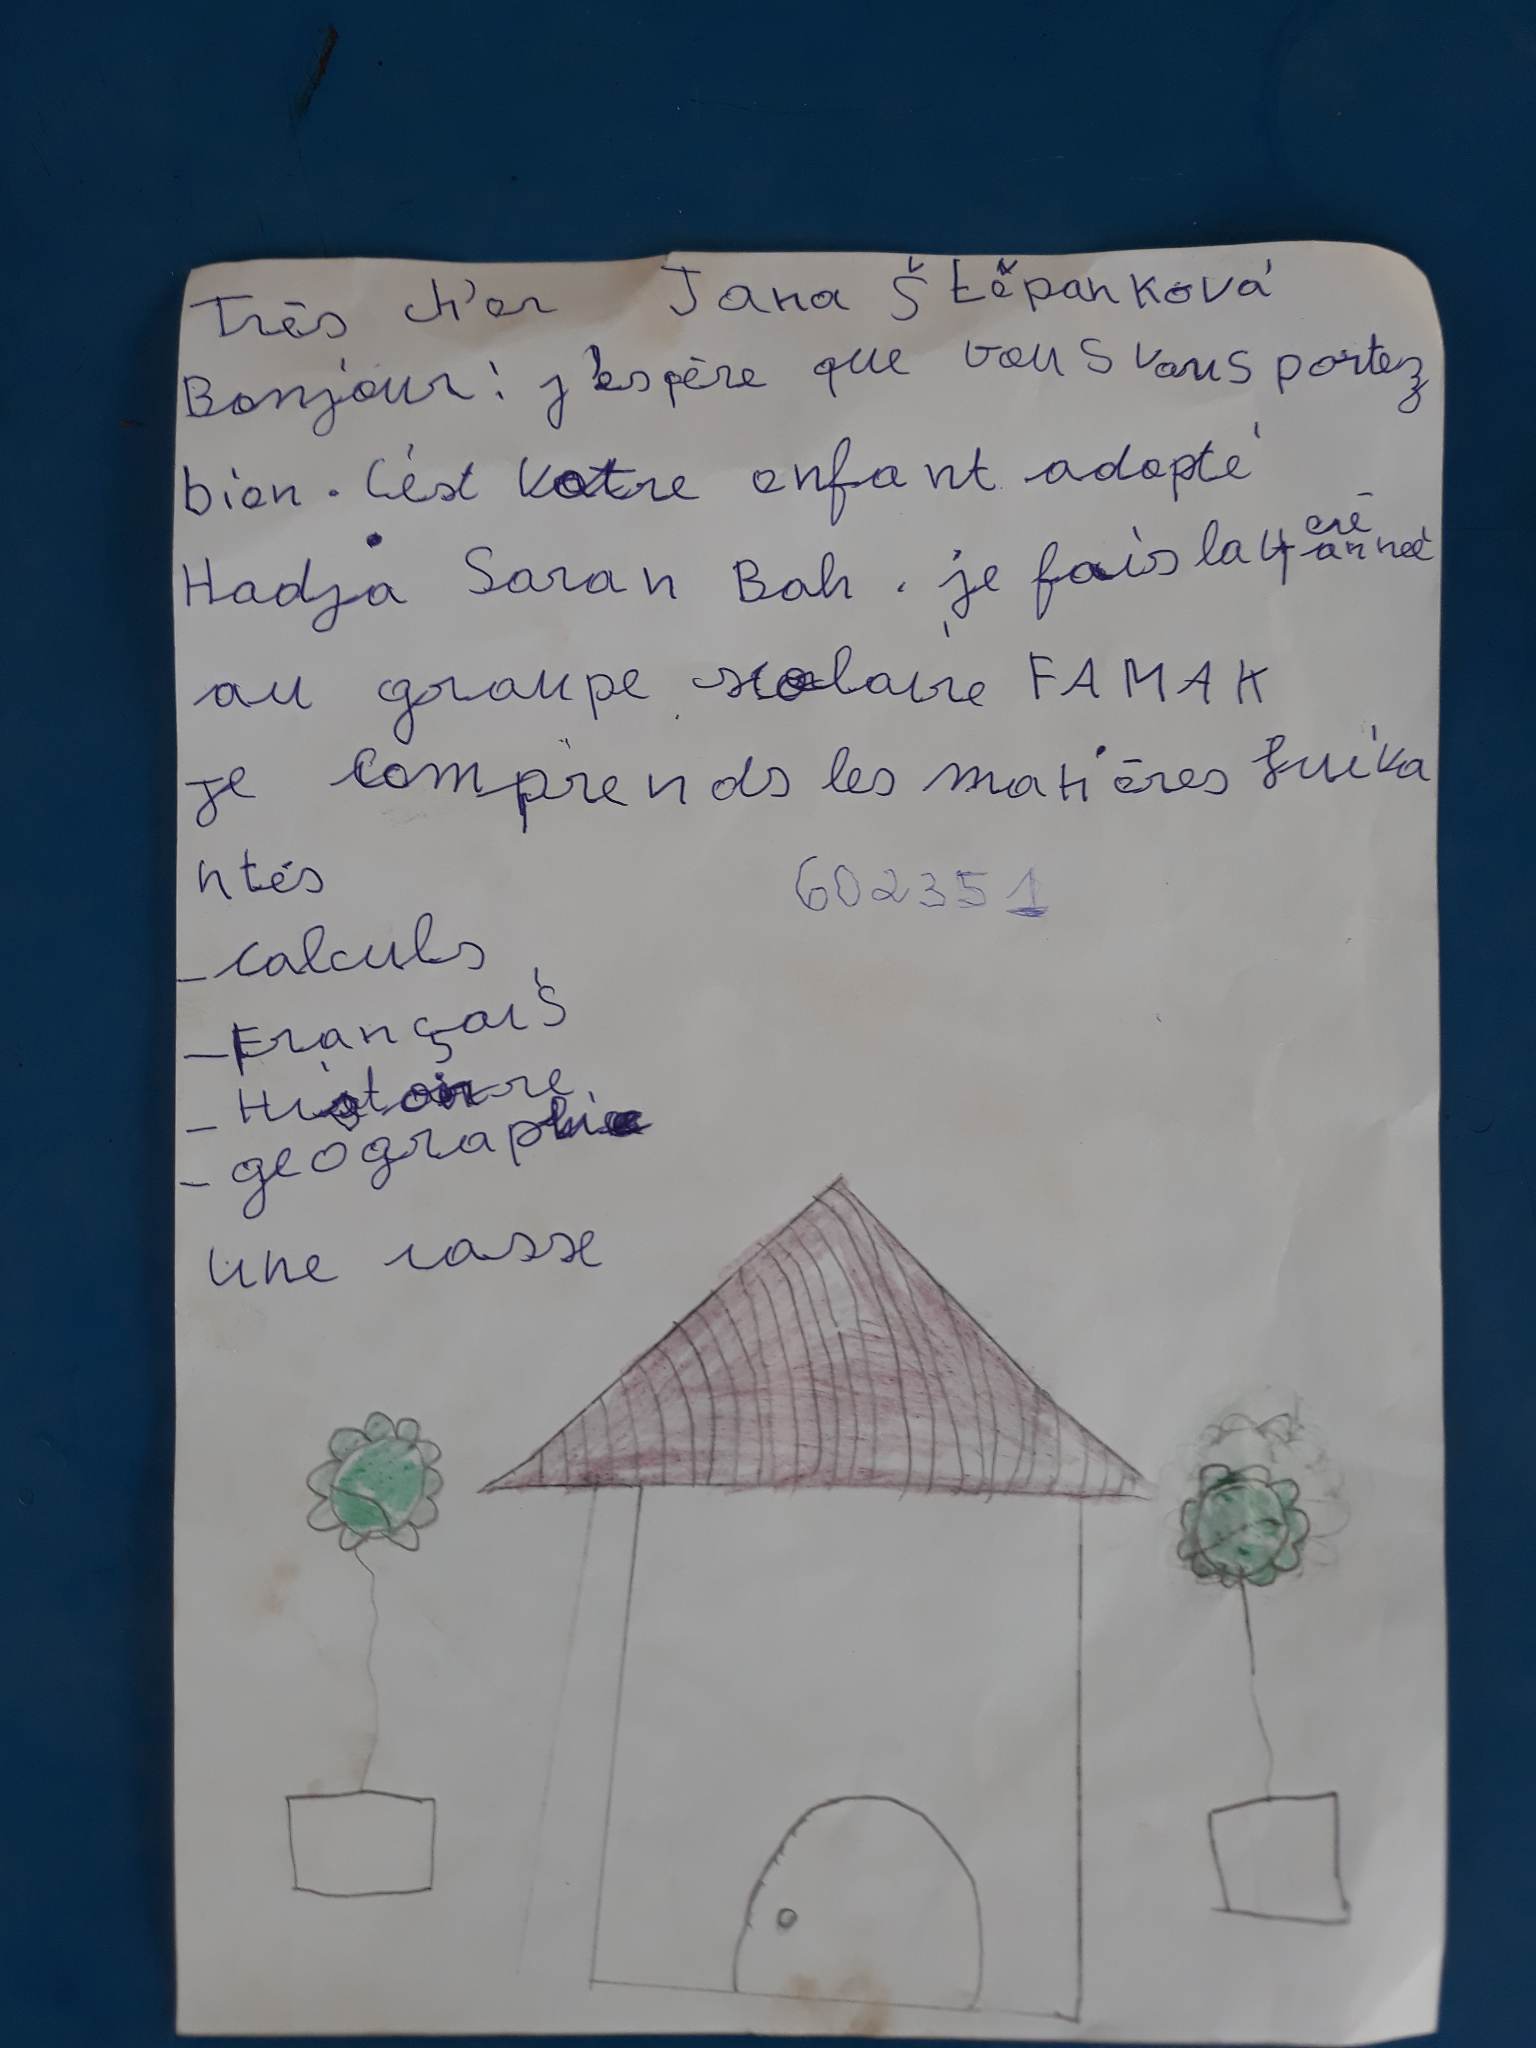 Très ch'er Jana Štěpanková
Bonjour! j'espère que vous vous portez
bien. C'est votre enfant adopté
Hadja Saran Bah. je fais la 4 erē année
au groupe scolaire FAMAK
je comprends les matières suika
ntés
602351
- calculs
- Français
- Histoire
- geographie
une casse